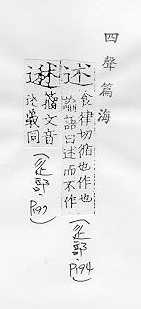 四聲篇海
述 食律切循也作也
論語曰述而不作
(辵部.P194)
籀文音
義同
(辵部.P197)